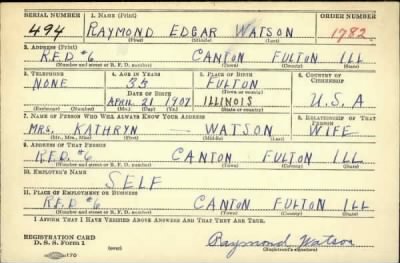 SERIAL NUMBER 1. NAME (Print) ORDER NUMBER
494 RAYMOND EDGAR WATSON 1782
(First) (Middle) (Last)
2. ADDRESS (Print)
R.F.D #6 CANTON FULTON ILL
(Number and street or R. F. D. number) (Town) (County) (State)
3. TELEPHONE 4. AGE IN YEARS 5. PLACE OF BIRTH 6. COUNTRY OF CITIZENSHIP
NONE 35 FULTON
DATE OF BIRTH (Town or county)
APRIL 21 1907 ILLINOIS U.S.A
(Exchange) (Number) (Mo.) (Day) (Yr.) (State or country)
7. NAME OF PERSON WHO WILL ALWAYS KNOW YOUR ADDRESS 8. RELATIONSHIP OF THAT PERSON
MRS. KATHRYN — WATSON WIFE
(Mr., Mrs., Miss) (First) (Middle) (Last)
9. ADDRESS OF THAT PERSON
R.F.D. #6 CANTON FULTON ILL
(Number and street or R. F. D. number) (Town) (County) (State)
10. EMPLOYER'S NAME
SELF
11. PLACE OF EMPLOYMENT OR BUSINESS
R.F.D #6 CANTON FULTON ILL
(Number and street or R. F. D. number) (Town) (County) (State)
I AFFIRM THAT I HAVE VERIFIED ABOVE ANSWERS AND THAT THEY ARE TRUE.
REGISTRATION CARD
D. S. S. Form 1 (over) Raymond Watson
(Registrant's signature)